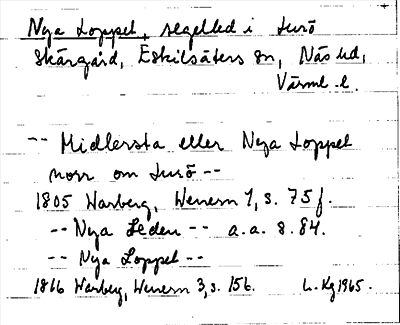 Nya Loppet, segelled i Lurö
skärgård, Eskilsäters sn, Näs hd,
Värml. l.
-- Midlersta eller Nya Loppet
norr om Lurö --
1805 Warberg, Wenern 1, s. 75 f.
-- Nya Leden -- a.a. s. 84.
-- Nya Loppet --
1816 Warberg, Wenern 3, s. 156. L. Kg 1965.